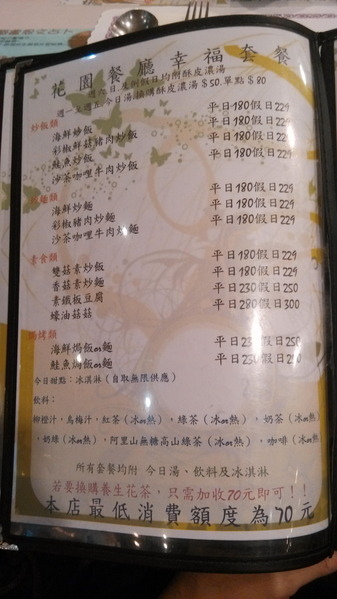 花園餐廳幸福套餐
週六.日及例假日均附酥皮濃湯
週一~週五今日湯換購酥皮濃湯$50.單點$80
炒飯類
海鮮炒飯 平日180假日229
彩椒鮮菇豬肉炒飯 平日180假日229
鮭魚炒飯 平日180假日229
沙茶咖哩牛肉炒飯 平日180假日229
麵類
海鮮炒麵 平日180假日229
彩椒豬肉炒麵 平日180假日229
沙茶咖哩牛肉炒麵 平日180假日229
素食類
雙菇素炒飯 平日180假日229
香菇素炒麵 平日180假日229
素鐵板豆腐 平日230假日250
蠔油菇菇 平日280假日300
焗烤類
海鮮焗飯or麵 平日230假日250
鮭魚焗飯or麵 平日230假日250
今日甜點：冰淇淋(自取無限供應)
飲料：
柳橙汁，烏梅汁，紅茶(冰or熱)，綠茶(冰or熱)，奶茶(冰or熱)
，奶綠(冰or熱)，阿里山無糖高山綠茶(冰or熱)，咖啡(冰or熱)
所有套餐均附 今日湯、飲料及冰淇淋
若要換購養生花茶，只需加收70元即可！！
本店最低消費額度為70元